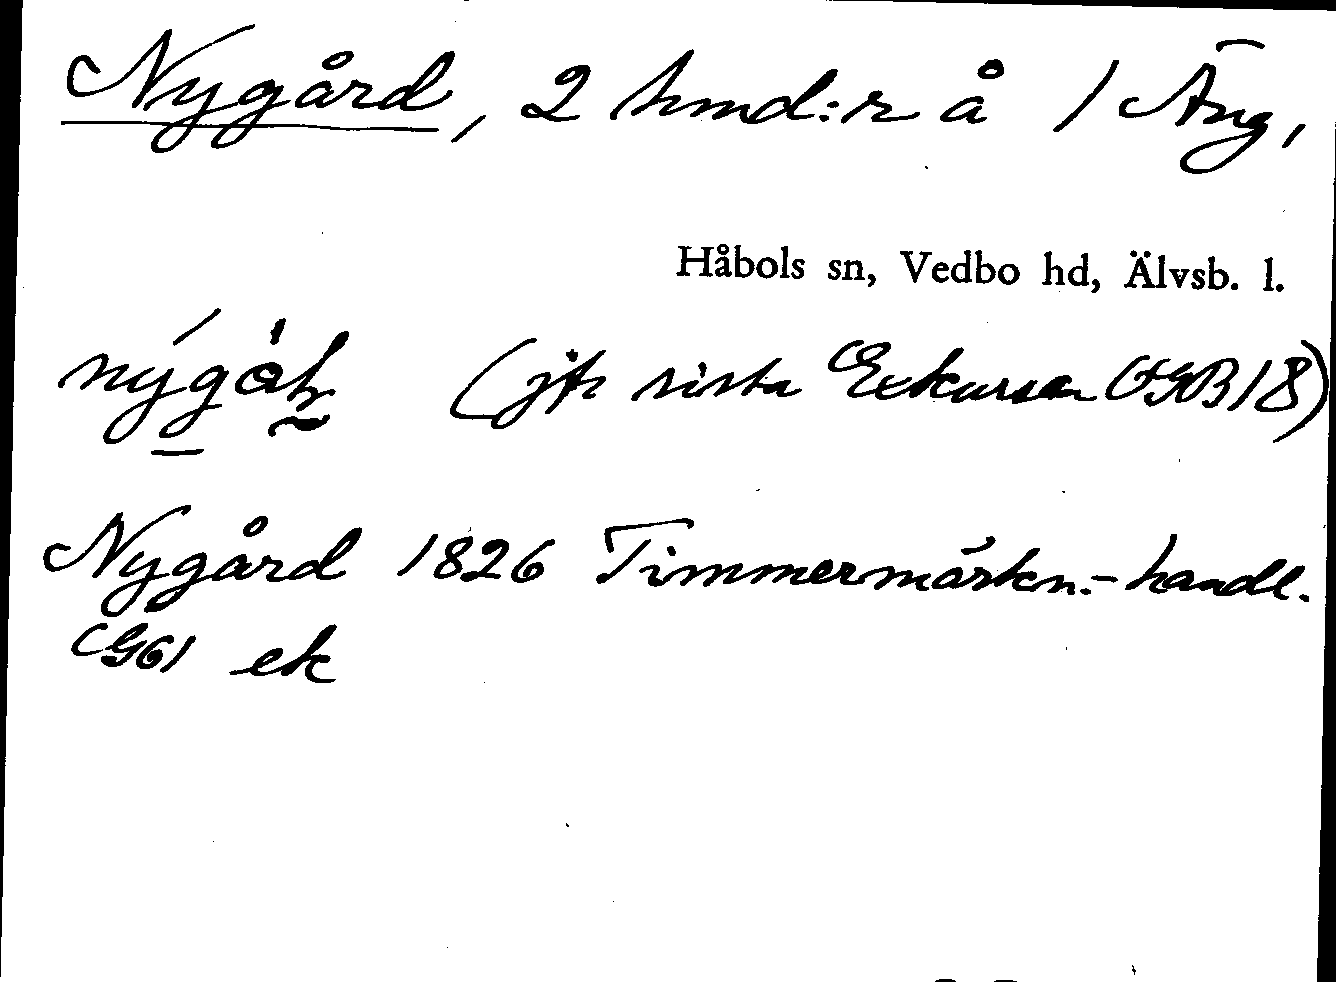 Nygård, 2 hmd:r å 1 Äng,
Håbols sn, Vedbo hd, Älvsb. l.
(jfr sista OGB 18)
Nygård 1826 Timmermärkn.-handl.
G61 ek